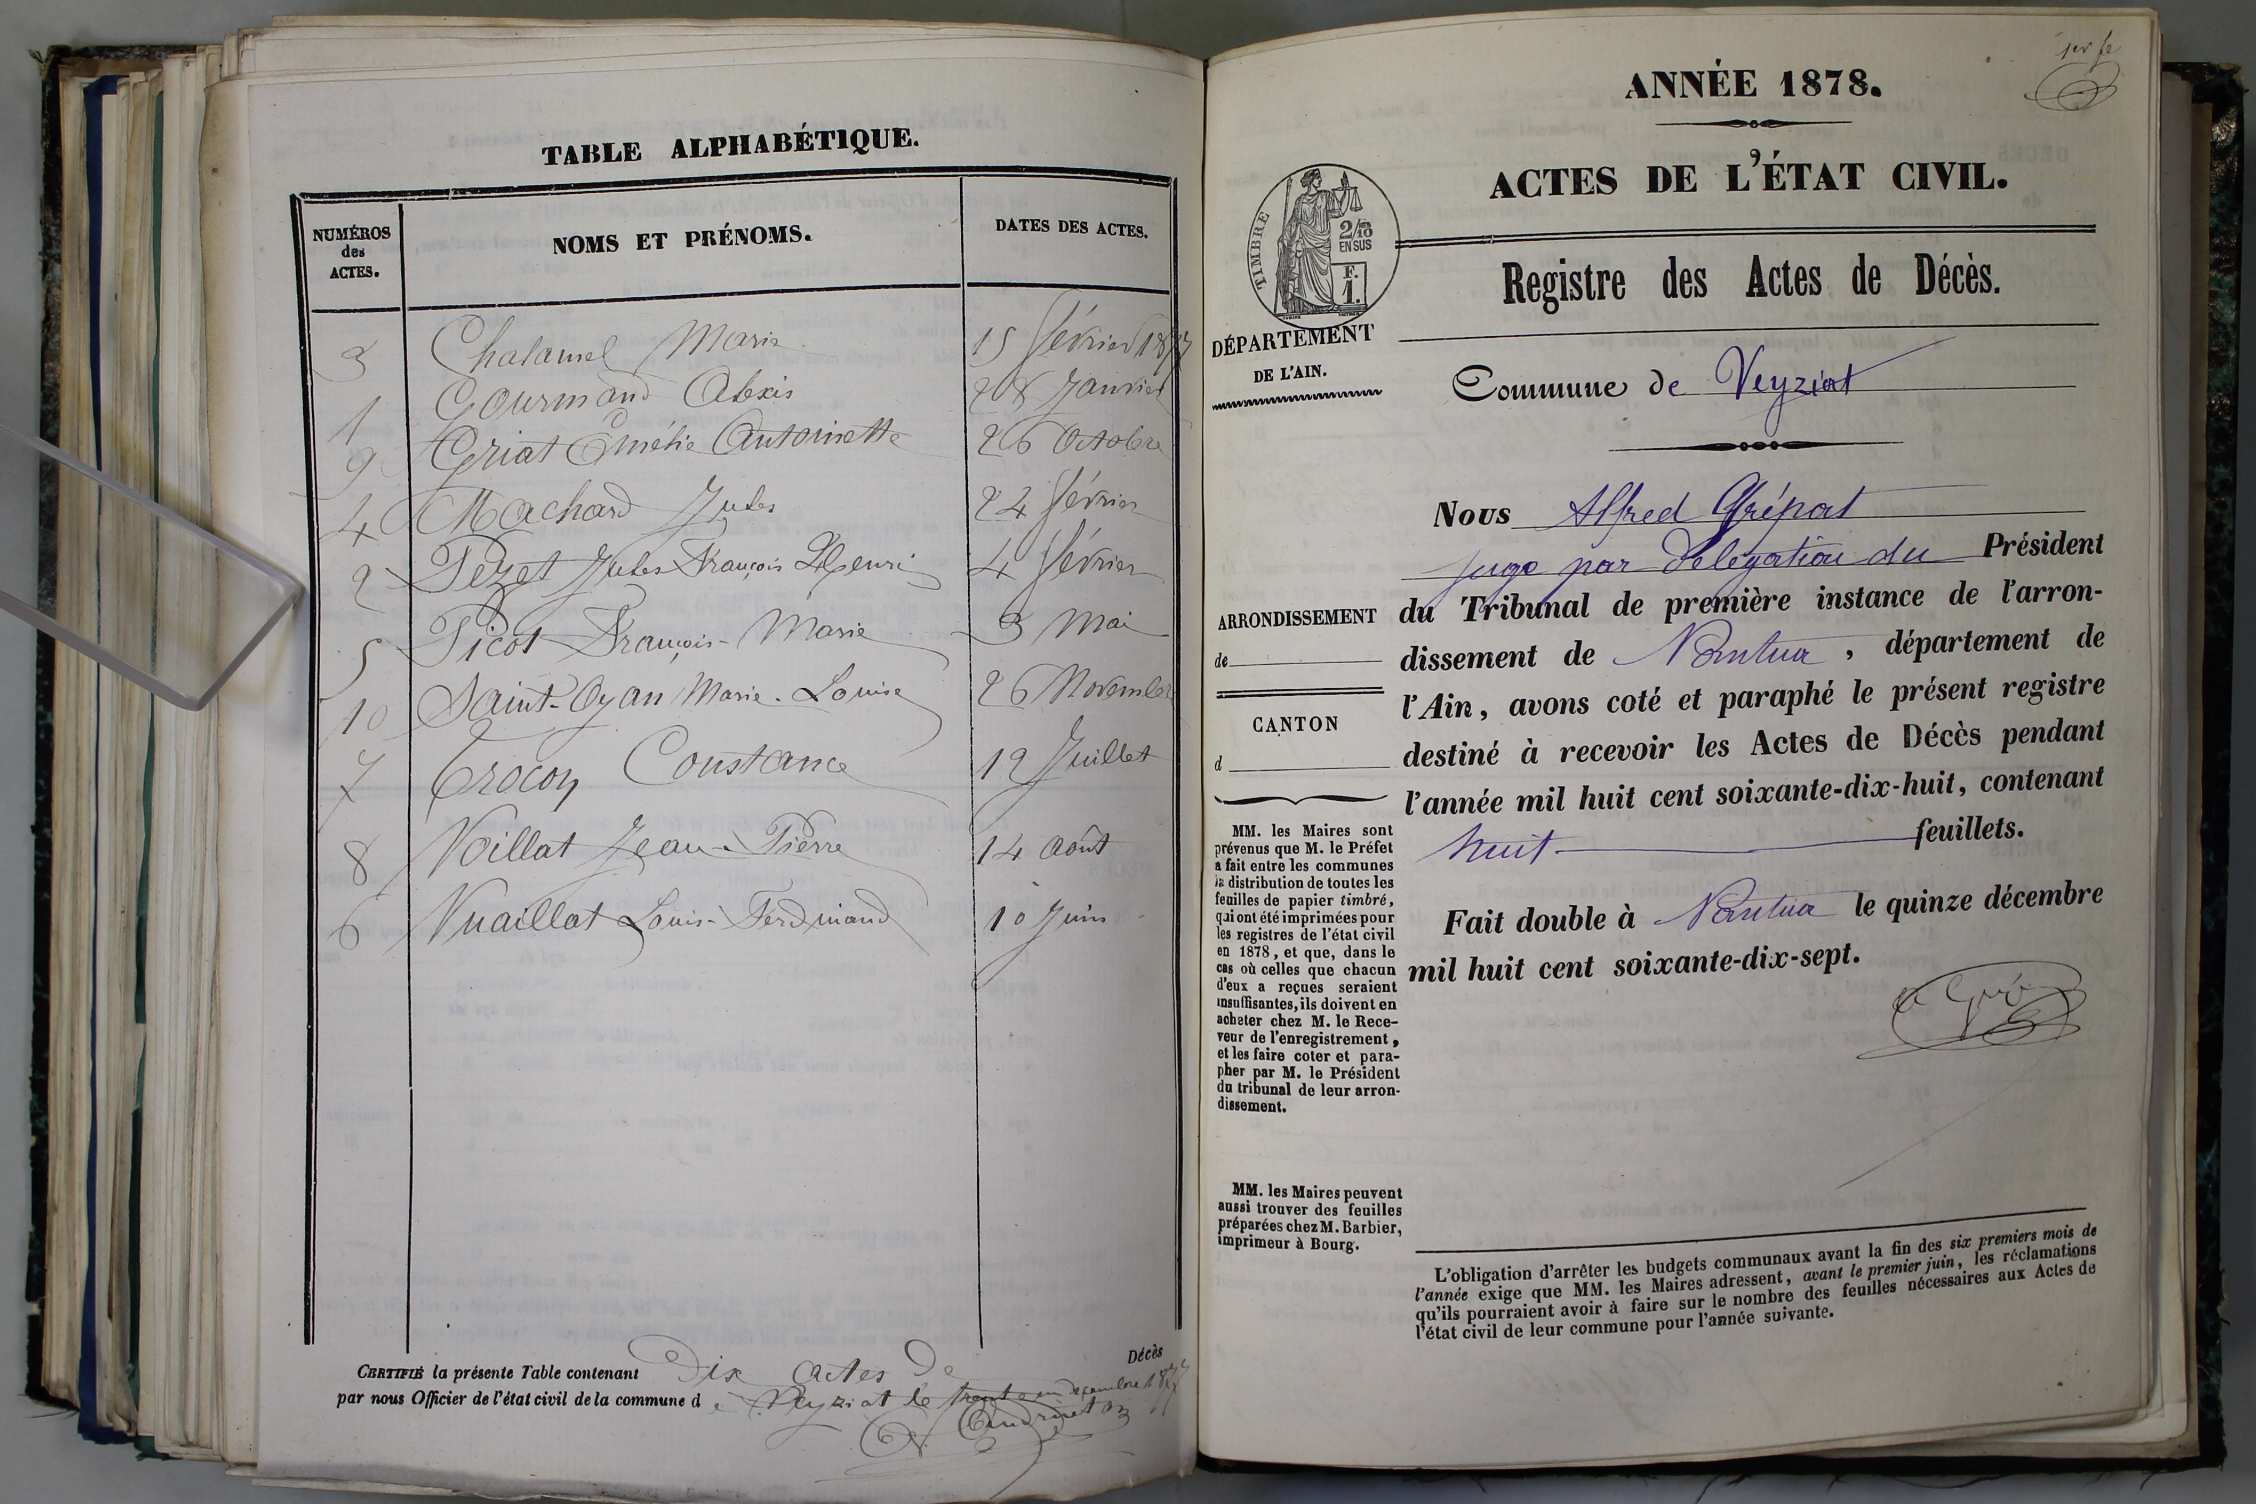 TABLE ALPHABÉTIQUE.
NUMÉROS des ACTES. NOMS ET PRÉNOMS. DATES DES ACTES.
3 Chatamel Marie 15 février 1877
1 Gourmand Alexis 28 Janvier
9 Griat Emélie Antoinette 26 Octobre
4 Machard Jules 24 février
2 Pezet Jules François Henri 4 février
5 Picot François-Marie 3 Mai
10 Saint-Oyan Marie-Louise 26 Novembre
7 Crocon Constance 12 Juillet
8 Voillat Jean-Pierre 14 août
6 Vuaillat Louis-Ferdinand 10 Juin
CERTIFIÉ la présente Table contenant Dix actes de Décès
par nous Officier de l'état civil de la commune de Veyziat le trente un décembre 1877
1er fe
ANNÉE 1878.
ACTES DE L'ÉTAT CIVIL.
TIMBRE
2/10
EN SUS
F.
1.
Registre des Actes de Décès.
DÉPARTEMENT
DE L'AIN.
Commune de Veyziat
Nous Alfred Grépat
juge par délégation du Président
ARRONDISSEMENT
de
CANTON
d
du Tribunal de première instance de l'arron-
dissement de Nantua, département de
l'Ain, avons coté et paraphé le présent registre
destiné à recevoir les Actes de Décès pendant
l'année mil huit cent soixante-dix-huit, contenant
huit feuillets.
Fait double à Nantua le quinze décembre
mil huit cent soixante-dix-sept.
MM. les Maires sont
prévenus que M. le Préfet
a fait entre les communes
la distribution de toutes les
feuilles de papier timbré,
qui ont été imprimées pour
les registres de l'état civil
en 1878, et que, dans le
cas où celles que chacun
d'eux a reçues seraient
insuffisantes, ils doivent en
acheter chez M. le Rece-
veur de l'enregistrement,
et les faire coter et para-
pher par M. le Président
du tribunal de leur arron-
dissement.
MM. les Maires peuvent
aussi trouver des feuilles
préparées chez M. Barbier,
imprimeur à Bourg.
L'obligation d'arrêter les budgets communaux avant la fin des six premiers mois de
l'année exige que MM. les Maires adressent, avant le premier juin, les réclamations
qu'ils pourraient avoir à faire sur le nombre des feuilles nécessaires aux Actes de
l'état civil de leur commune pour l'année suivante.